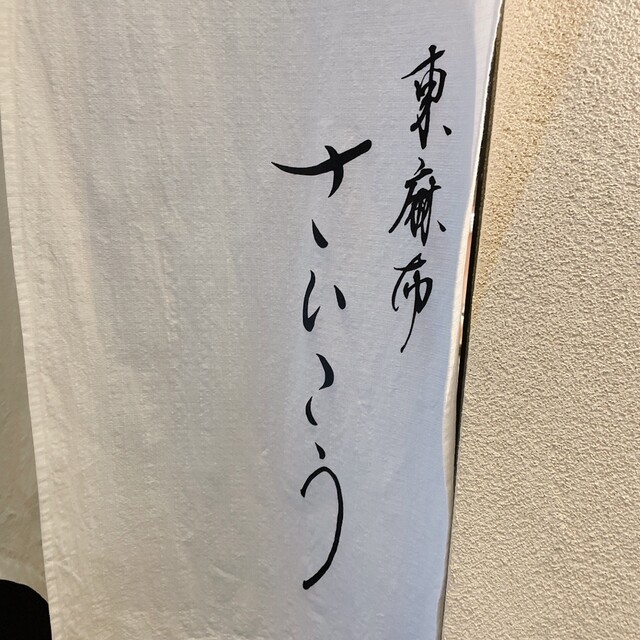 東麻布
さいこう